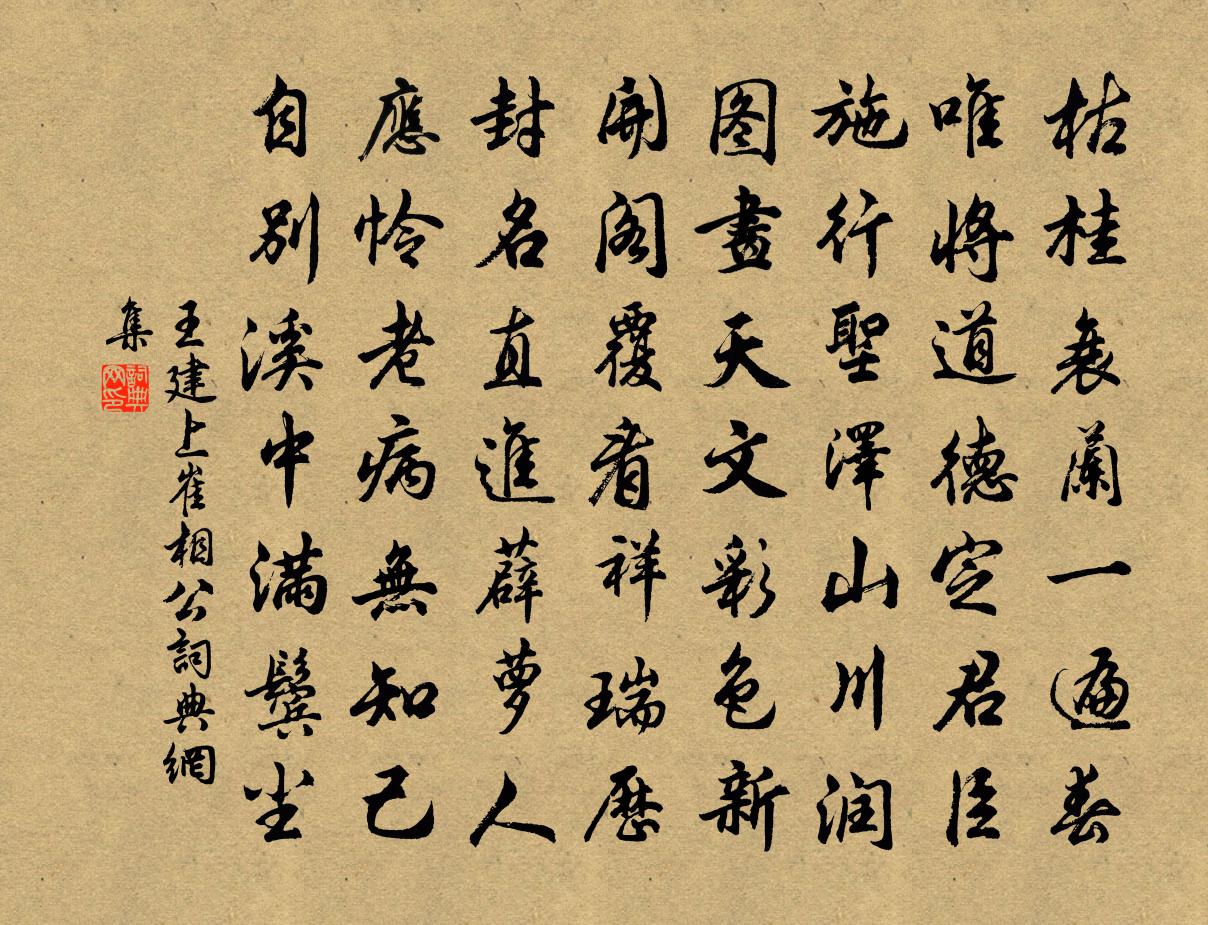 枯桂衰蘭一遍春
唯將道德定君臣
施行聖澤山川润
图畫天文彩色新
開阁覆看祥瑞曆
封名直進薜萝人
應怜老病無知己
自别溪中满鬓尘
王建上崔相公詞典網
集
詞典网印